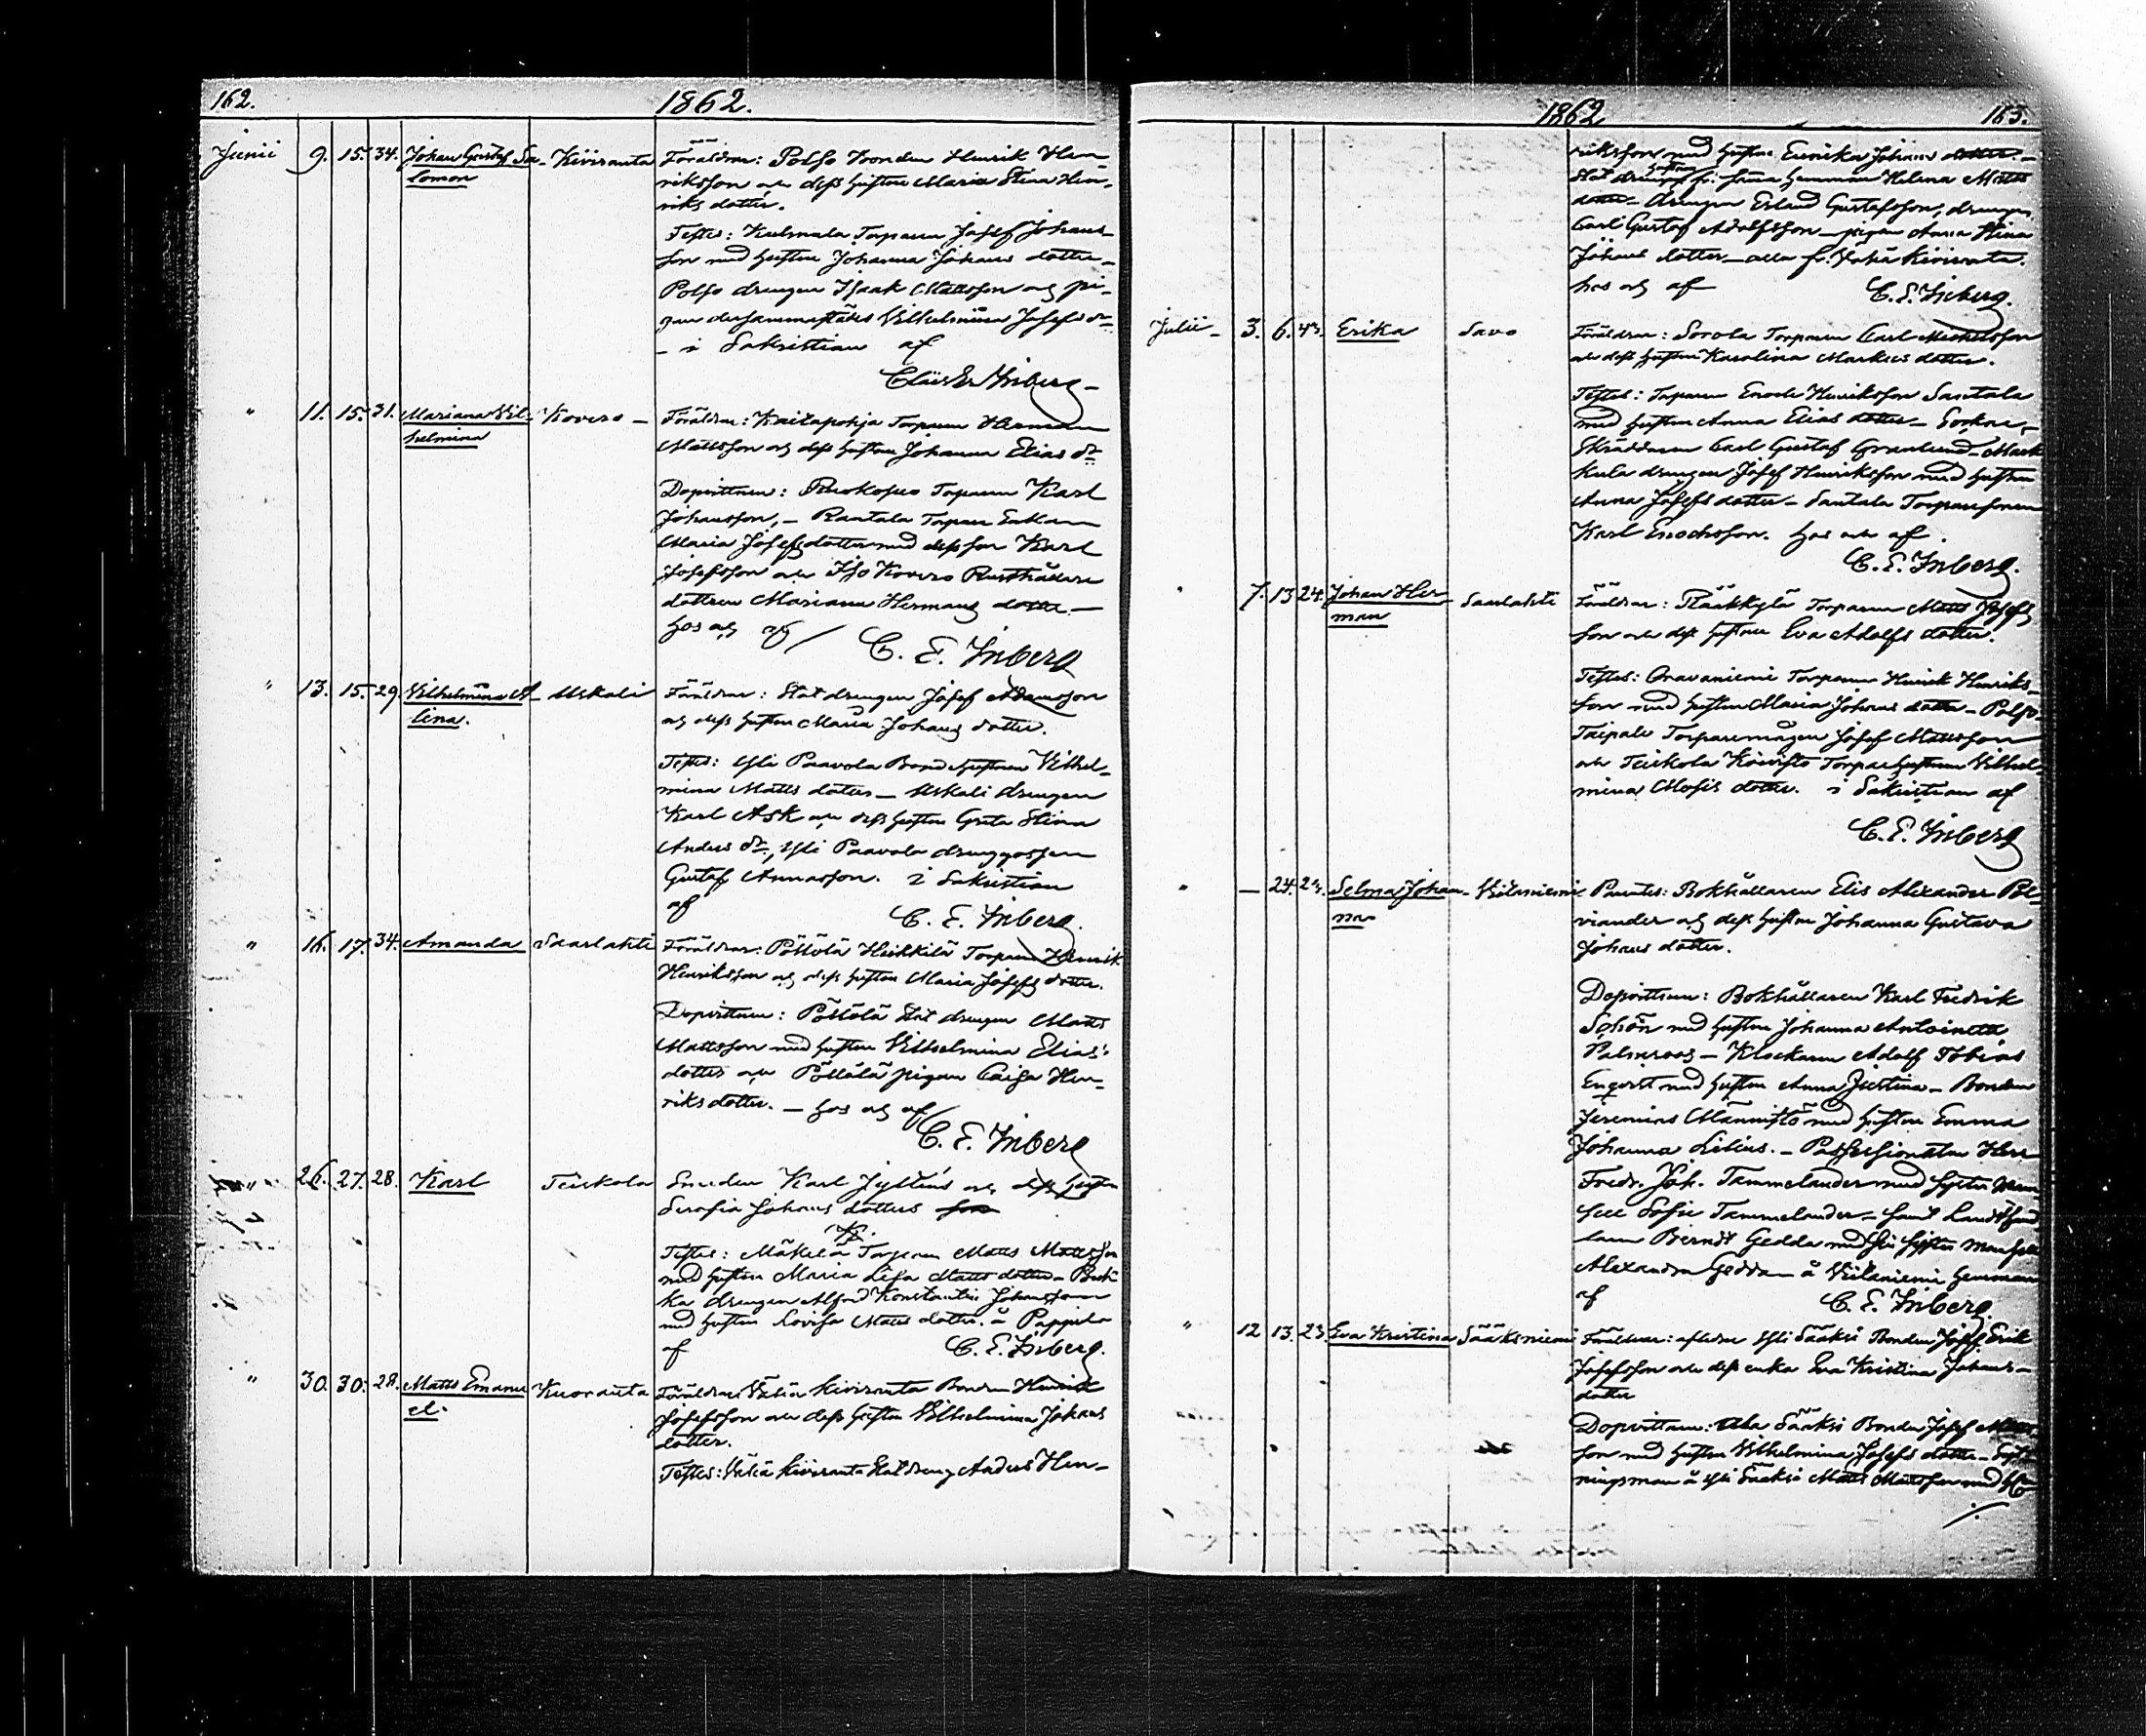 162.
1862.
Junii 9. 15. 34. Johan Gustaf Sa- Kiviranta Föräldrar: Polso Bonden Henrik Hen-
lomon riksson och dess hustru Maria Stina Hen-
riks dotter.
Testes: Kulmala Torparen Josef Johans-
son med hustru Johanna Johans dotter_
Polso drengen Isaak Mattsson och pi-
gan dersammastädes Vilhelmina Josefs dr
_ i Sakristian af
Clas Er Inberg_
" 11. 15. 31. Mariana Vil- Kovero _ Föräldrar: Kaitapohja Torparen Herman
helmina Mattsson och dess hustru Johanna Elias dr
Dopvittnen: Torparen Karl
Johansson, _ Rantala Torpare Enkan
Maria Josefsdotter med dess son Karl
Josefsson och Iso Kovero Rusthållare
dottren Mariana Hermans dotter _
hos och af
C. E. Inberg
" 13. 15. 29. Vilhelmina A- Uskali Föräldrar: Stat drengen Josef Adamsson
lina. och dess hustru Maria Johans dotter.
Testes: Yli Paavola Bondehustrun Vilhel-
mina Matts dotter _ Uskali drengen
Karl Ask och dess hustru Greta Stina
Anders dr, Yli Paavola drenggossen
Gustaf Annasson. i Sakristian
af
C. E. Inberg.
" 16. 17. 34. Amanda Saarlahti Föräldrar: Pöllölä Heikkilä Torparen Henrik
Henriksson och dess hustru Maria Josefs dotter.
Dopvittnen: Pöllölä Stat drengen Matts
Mattsson med hustru Vilhelmina Elias
dotter och Pöllölä pigan Caisa Hen-
riks dotter. _ hos och af
C. E. Inberg
" 26. 27. 28. Karl Teiskola Smeden Karl Jyllins och dess hustru
Serafia Johans dotters son
K.
Testes: Mäkelä Torparen Matts Mattsson
med hustru Maria Lisa Matts dotter _
ka drengen Alfred Konstantin Johansson
med hustru Lovisa Matts dotter. å Pappila
af C. E. Inberg.
" 30. 30. 28. Matts Emanu- Kuoranta Föräldrar Vähä Kiviranta Bonden Henrik
el. Josefsson och dess hustru Vilhelmina Johans
dotter.
Testes: Vähä Kiviranta Stat dreng Anders Hen-
1862
163.
riksson med hustru Eunika Johans dotter _
Stat drengs hustrun fr. samma hemman Helena Matts
dotter _ drengen Erland Gustafsson, drengen
Carl Gustaf Adolfsson _ pigan Anna Stina
Johans dotter _ alla fr. Vähä Kiviranta.
hos och af C. E. Inberg.
Julii _ 3. 6. 43. Erika Savo Föräldrar: Sorola Torparen Carl Michelsson
och dess hustru Karolina Markus dotter.
Testes: Torparen Enok Henriksson Santala
med hustru Anna Elias dotter _ Socken-
Skräddaren Carl Gustaf Granlund _ Mark
kula drengen Josef Henriksson med hustru
Anna Josefs dotter _ Santala Torparesonen
Karl Enochsson. hos och af.
C. E. Inberg.
" 7. 13 24. Johan Her- Saarlahti Föräldrar: Räikkylä Torparen Matts Josefs
man son och dess hustru Eva Adolfs dotter.
Testes: Oravaniemi Torparen Henrik Henriks-
son med hustru Maria Johans dotter _ Polso-
Taipale Torparemågen Josef Mattsson
och Teiskola Koivisto Torparhustrun Vilhel-
mina Mosis dotter. i Sakristian af
C. E. Inberg
" _ 24. 24. Selma Johan- Viilaniemi Parentes: Bokhållaren Elis Alexander Be-
na viander och dess hustru Johanna Gustava
Johans dotter.
Dopvittnen: Bokhållaren Karl Fredrik
Schön med hustru Johanna Antoinetta
Palmroos _ Klockaren Adolf Tobias
Enqvist med hustru Anna Justina _ Bonden
Jeremias Männistö med hustru Emma
Johanna Lilius. _ Possessionaten Herr
Fredr. Joh. Tammelander med Syster Mam
sell Sofie Tammelander _ samt
Berndt Gedda med sin Syster Mamsell
Alexandra Gedda _ å Viilaniemi hemman
af C. E. Inberg
" 12 13. 23. Eva Kristina Sääksniemi Föräldrar: afledne Yli Sääksi Bonden Josef Erik
Josefsson och dess enka Eva Kristina Johans-
dotter
Dopvittnen: Ala Sääksi Bonden Josef Matts
son med hustru Vilhelmina Josefs dotter _
ningsman å Yli Sääksi Matts Mattsson med
./.